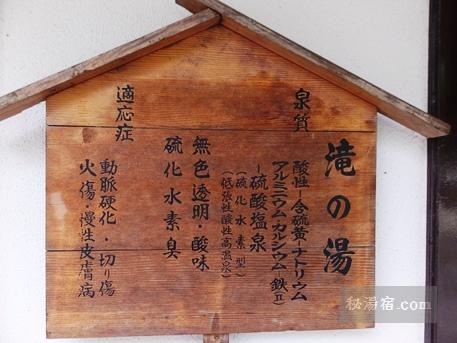 滝の湯
泉質
酸性ー含硫黄ーナトリウム
アルミニウム・カルシウム・鉄Ⅱ
ー硫酸塩泉
(硫化水素型)
(低張性酸性高温泉)
無色透明・酸味
硫化水素臭
適応症
動脈硬化・切り傷
火傷・慢性皮膚病
秘湯宿.com